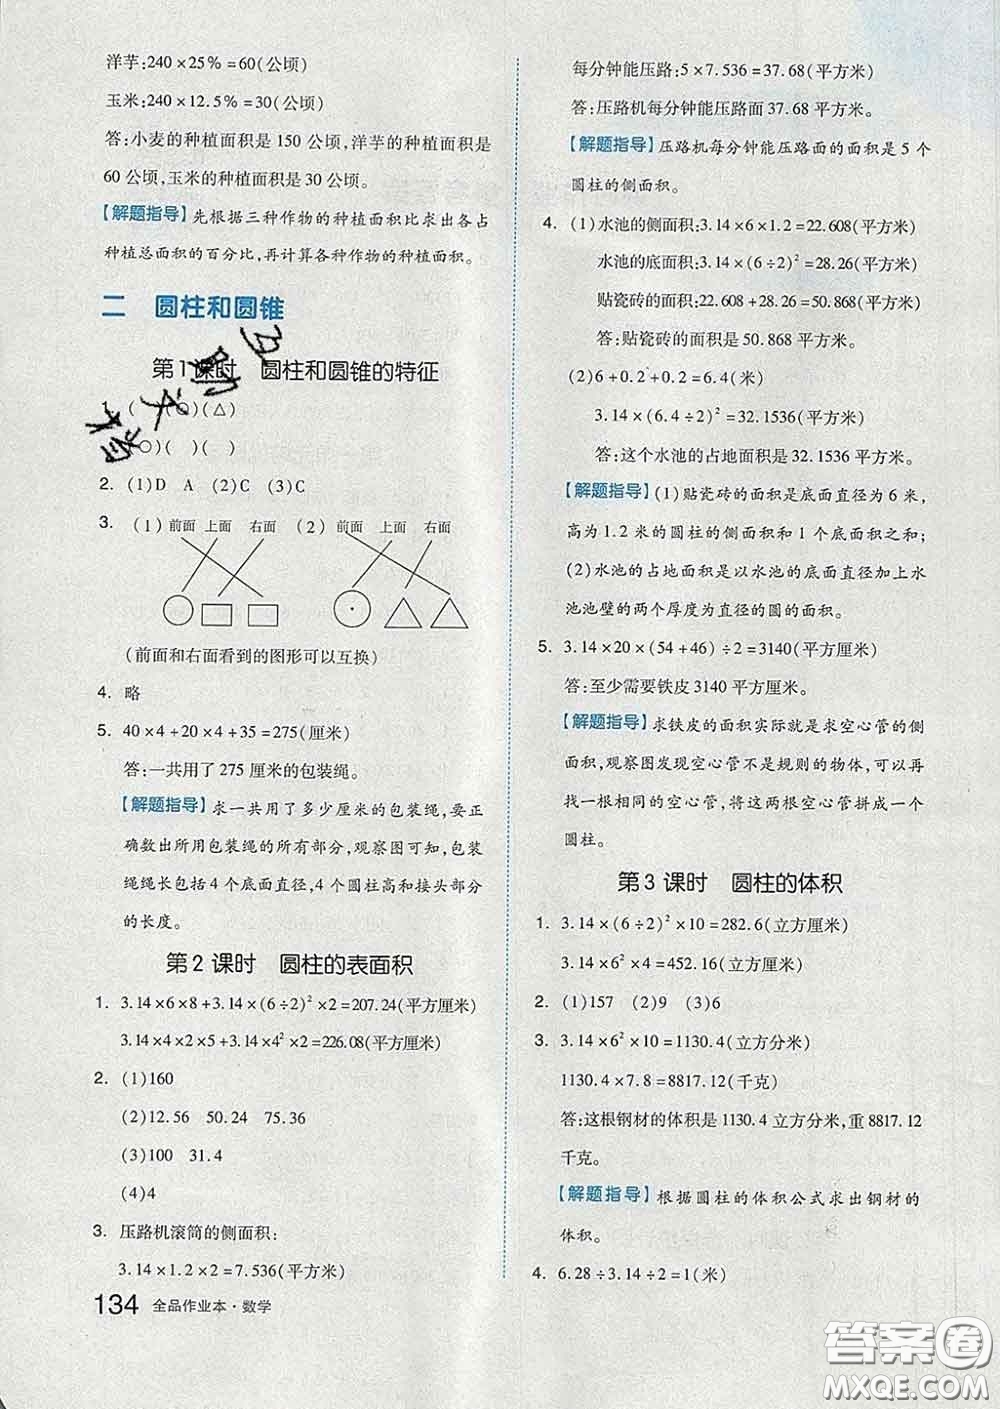 洋芋:240×25%=60(公顷)
玉米:240×12.5%=30(公顷)
答:小麦的种植面积是 150 公顷,洋芋的种植面积是
60 公顷,玉米的种植面积是 30 公顷。
【解题指导】先根据三种作物的种植面积比求出各占
种植总面积的百分比,再计算各种作物的种植面积。
二 圆柱和圆锥
第1课时 圆柱和圆锥的特征
1. ( )(○)(△)
(○)( )( )
2. (1)D A (2)C (3)C
3. (1) 前面 上面 右面 (2) 前面 上面 右面
(前面和右面看到的图形可以互换)
4. 略
5. 40×4+20×4+35=275(厘米)
答:一共用了 275 厘米的包装绳。
【解题指导】求一共用了多少厘米的包装绳,要正
确数出所用包装绳的所有部分,观察图可知,包装
绳绳长包括4个底面直径,4个圆柱高和接头部分
的长度。
第2课时 圆柱的表面积
1. 3.14×6×8+3.14×(6÷2)²×2=207.24(平方厘米)
3.14×4×2×5+3.14×4²×2=226.08(平方厘米)
2. (1)160
(2)12.56 50.24 75.36
(3)100 31.4
(4)4
3. 压路机滚筒的侧面积:
3.14×1.2×2=7.536(平方米)
134 全品作业本·数学
每分钟能压路:5×7.536=37.68(平方米)
答:压路机每分钟能压路面 37.68 平方米。
【解题指导】压路机每分钟能压路面的面积是5个
圆柱的侧面积。
4. (1)水池的侧面积:3.14×6×1.2=22.608(平方米)
水池的底面积:3.14×(6÷2)²=28.26(平方米)
贴瓷砖的面积:22.608+28.26=50.868(平方米)
答:贴瓷砖的面积是 50.868 平方米。
(2)6+0.2+0.2=6.4(米)
3.14×(6.4÷2)²=32.1536(平方米)
答:这个水池的占地面积是 32.1536 平方米。
【解题指导】(1)贴瓷砖的面积是底面直径为6米,
高为1.2米的圆柱的侧面积和1个底面积之和;
(2)水池的占地面积是以水池的底面直径加上水
池池壁的两个厚度为直径的圆的面积。
5. 3.14×20×(54+46)÷2=3140(平方厘米)
答:至少需要铁皮 3140 平方厘米。
【解题指导】求铁皮的面积实际就是求空心管的侧
面积,观察图发现空心管不是规则的物体,可以再
找一根相同的空心管,将这两根空心管拼成一个
圆柱。
第3课时 圆柱的体积
1. 3.14×(6÷2)²×10=282.6(立方厘米)
3.14×6²×4=452.16(立方厘米)
2. (1)157 (2)9 (3)6
3. 3.14×6²×10=1130.4(立方分米)
1130.4×7.8=8817.12(千克)
答:这根钢材的体积是 1130.4 立方分米,重 8817.12
千克。
【解题指导】根据圆柱的体积公式求出钢材的
体积。
4. 6.28÷3.14÷2=1(米)
答案圈
MXQE.COM